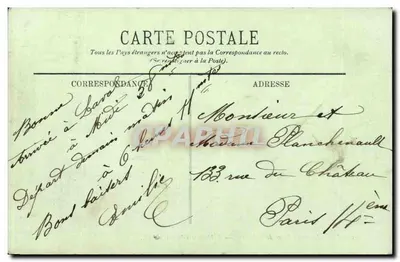 CARTE POSTALE
Tous les Pays étrangers n'acceptent pas la Correspondance au recto.
(Se renseigner à la Poste).
CORRESPONDANCE
ADRESSE
Bonne
arrivée à Laval
à Midi
Départ demain matin
à 6 heures
Bons baisers
Emilie
Monsieur et
Madame Planchenault
133 rue du Château
Paris 14ème